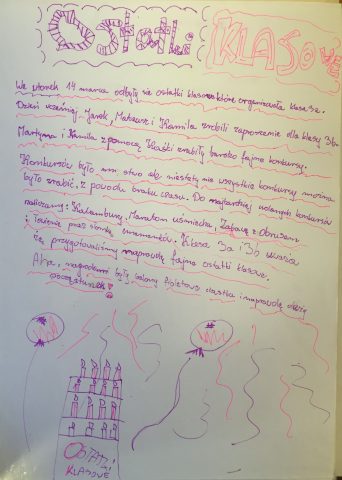 Ostatki KLASOWE
We wtorek 14 marca odbyły się ostatki klasowe które organizowała klasa 3a.
Dzień wcześniej Jarek, Mateusz i Kamila zrobili zaproszenie dla klasy 3b.
Martyna i Kamila z pomocą Klaśki zrobiły barsko fajne konkursy.
Konkursów było mnustwo ale niestety nie wszystkie konkursy można
było zrobić. z powodu braku czasu. Do najbardziej udanych konkursów
należą: Kalambury, Maraton uśmiechu, Zabawę z Obrusem
i Tańcenie przez słomkę. Klasa 3a i 3b uważa
że przygotowaliśmy naprawdę fajne ostatki klasowe.
Aha, nagrodami były balony fioletowe ciastka i naprawdę dużo
poczęstunek!
OSTATKI
KLASOWE